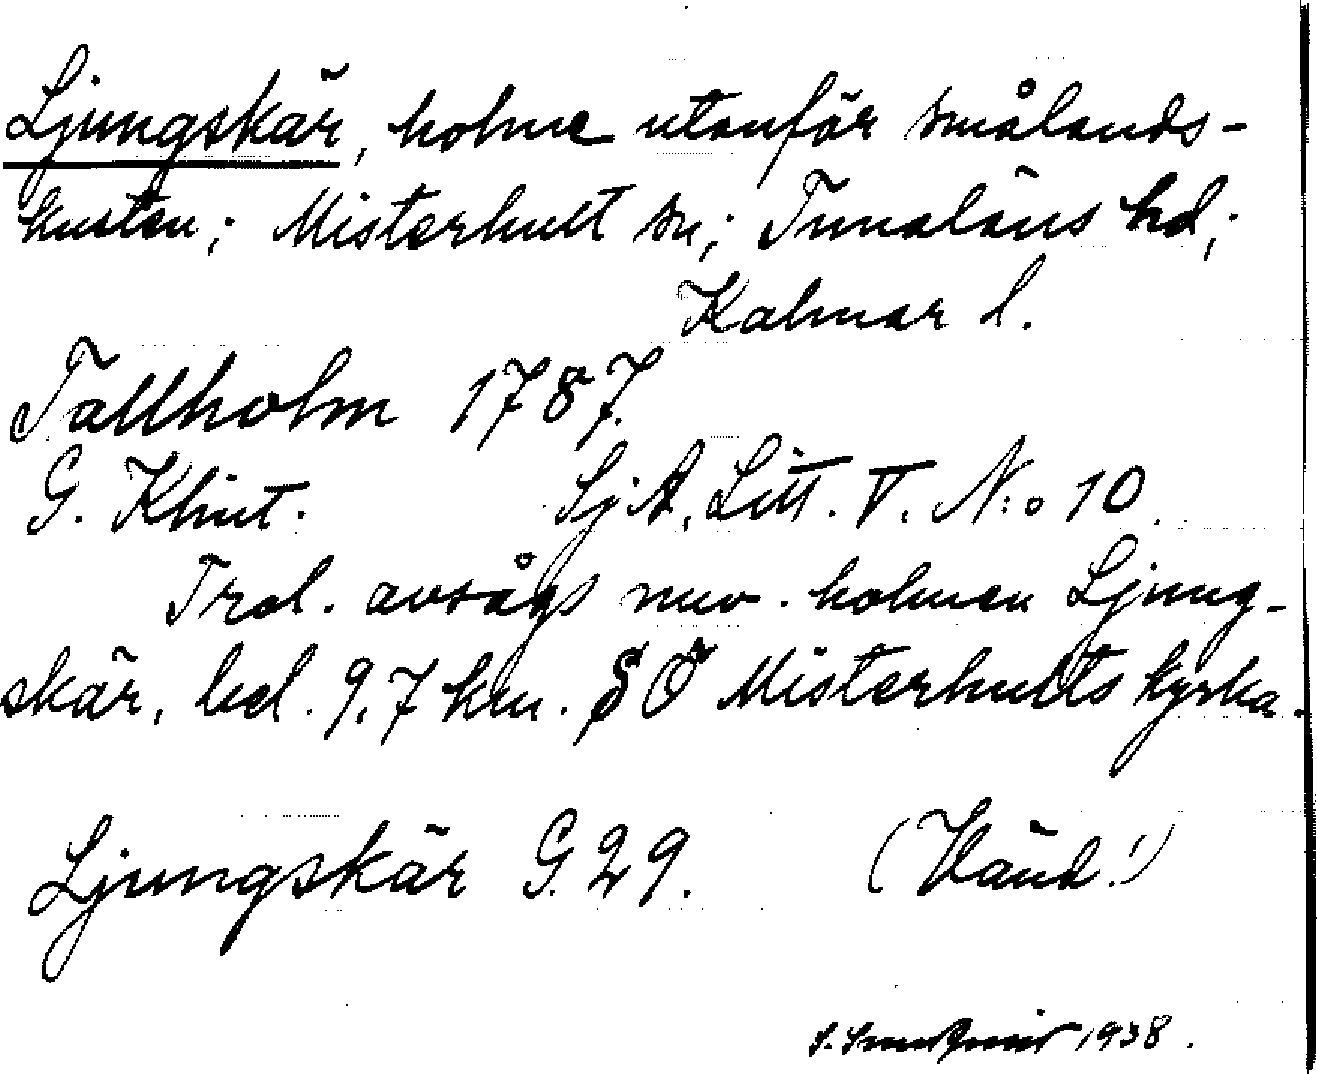 Ljungskär, holme utanför smålands-
kusten; Misterhult sn; Tunaläns hd;
Kalmar l.
Tallholm 1787.
G. Klint. SjA, Litt. V. N:o 10.
Trol. avsågs nuv. holmen Ljung-
skär, bel. 9,7 km. SÖ Misterhults kyrka.
Ljungskär G. 29. (Vänd!)
1938.